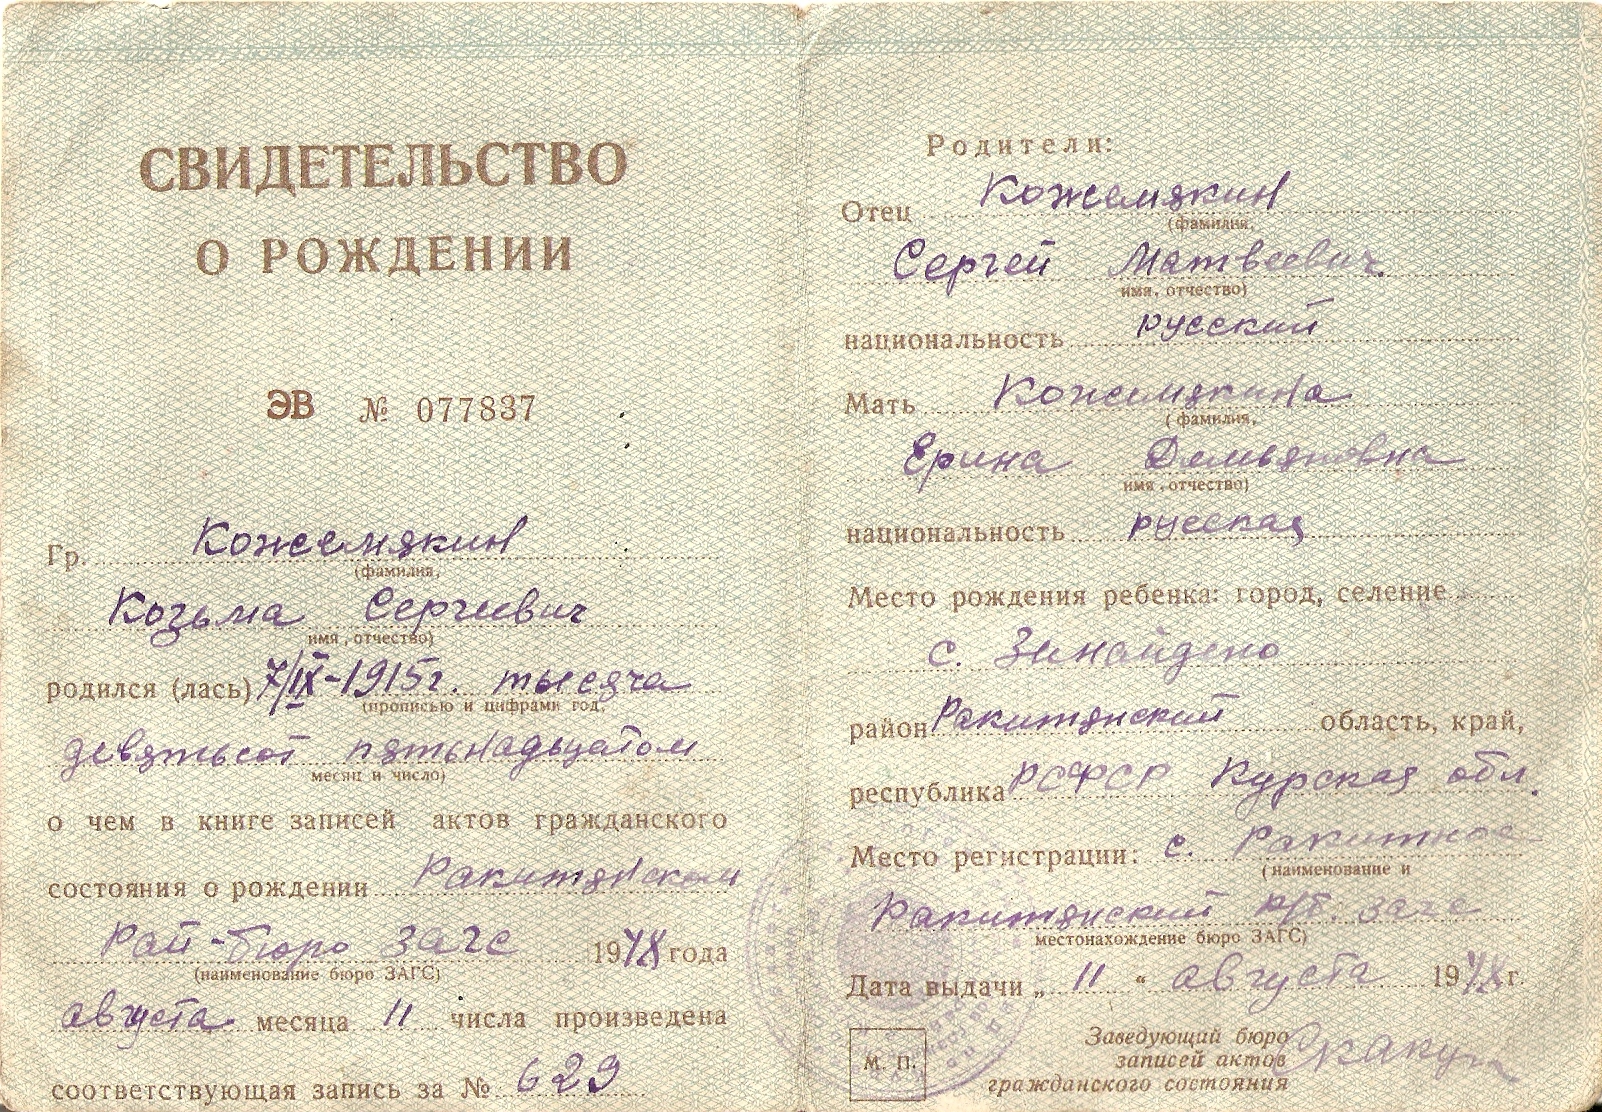 СВИДЕТЕЛЬСТВО
О РОЖДЕНИИ
ЭВ № 077837
Гр. Кожемякин
(фамилия,
Козьма Сергеевич
имя, отчество)
родился (лась) 7/IX-1915г. тысяча
(прописью и цифрами год,
девятьсот пятьнадцатом
месяц и число)
о чем в книге записей актов гражданского
состояния о рождении Ракитянском
Рай-бюро загс 1948 года
(наименование бюро ЗАГС)
августа месяца 11 числа произведена
соответствующая запись за № 629
Родители:
Отец Кожемякин
(фамилия,
Сергей Матвеевич.
имя, отчество)
национальность русский
Мать Кожемякина
(фамилия,
Ерина Демьяновна
имя, отчество)
национальность русская
Место рождения ребенка: город, селение
с. Зинайдено
район Ракитянский область, край,
республика РСФСР Курская обл.
Место регистрации: с. Ракитное
(наименование и
Ракитянский р/б. загс
местонахождение бюро ЗАГС)
Дата выдачи „ 11 “ августа 1948 г.
М. П.
Заведующий бюро
записей актов
гражданского состояния